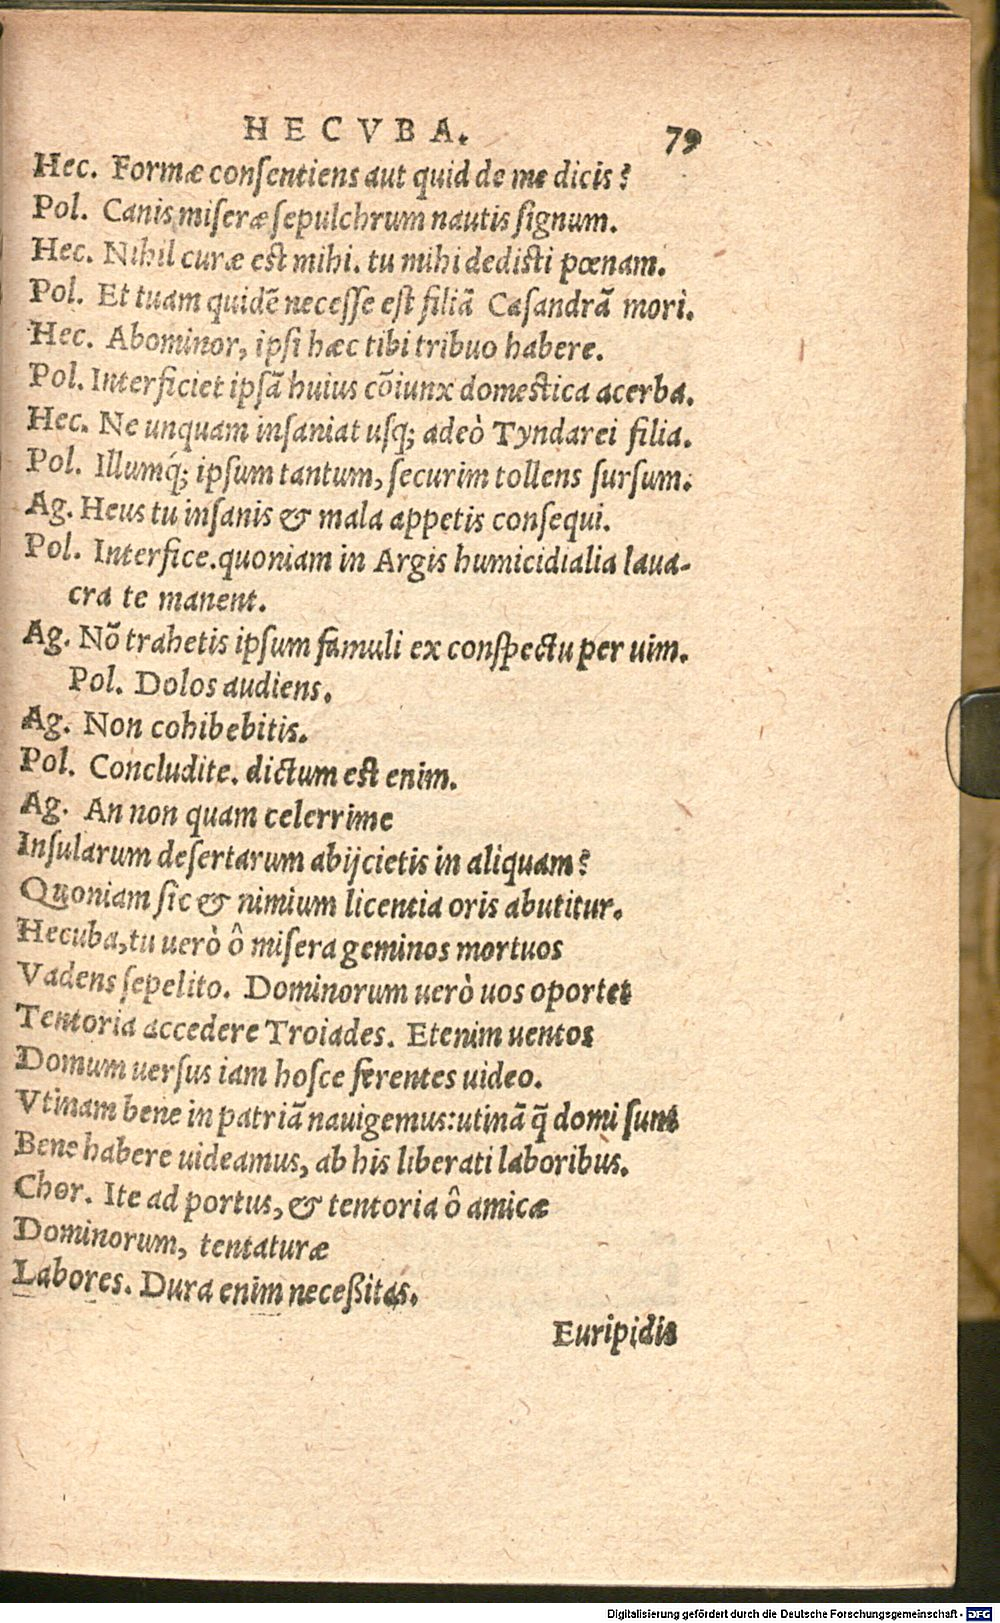 HECVBA. 79
Hec. Formæ conſentiens aut quid de me dicis?
Pol. Canis miſeræ ſepulchrum nautis ſignum.
Hec. Nihil curæ est mihi. tu mihi dedisti pœnam.
Pol. Et tuam quidē neceſſe eſt filiā Caſandrā mori.
Hec. Abominor, ipſi hæc tibi tribuo habere.
Pol. Interficiet ipſā huius cōiunx domestica acerba.
Hec. Ne unquam inſaniat uſq; adeò Tyndarei filia.
Pol. Illumq́; ipſum tantum, ſecurim tollens ſurſum.
Ag. Heus tu inſanis & mala appetis conſequi.
Pol. Interfice. quoniam in Argis humicidialia laua-
cra te manent.
Ag. Nō trahetis ipſum famuli ex conſpectu per uim.
Pol. Dolos audiens.
Ag. Non cohibebitis.
Pol. Concludite. dictum est enim.
Ag. An non quam celerrime
Inſularum deſertarum abijcietis in aliquam?
Quoniam ſic & nimium licentia oris abutitur.
Hecuba, tu uerò ô miſera geminos mortuos
Vadens ſepelito. Dominorum uerò uos oportet
Tentoria accedere Troiades. Etenim uentos
Domum uerſus iam hoſce ferentes uideo.
Vtinam bene in patriā nauigemus: utinā q̄ domi ſunt
Bene habere uideamus, ab his liberati laboribus.
Chor. Ite ad portus, & tentoria ô amicæ
Dominorum, tentaturæ
Labores. Dura enim neceßitas.
Euripidis
Digitalisierung gefördert durch die Deutsche Forschungsgemeinschaft - DFG